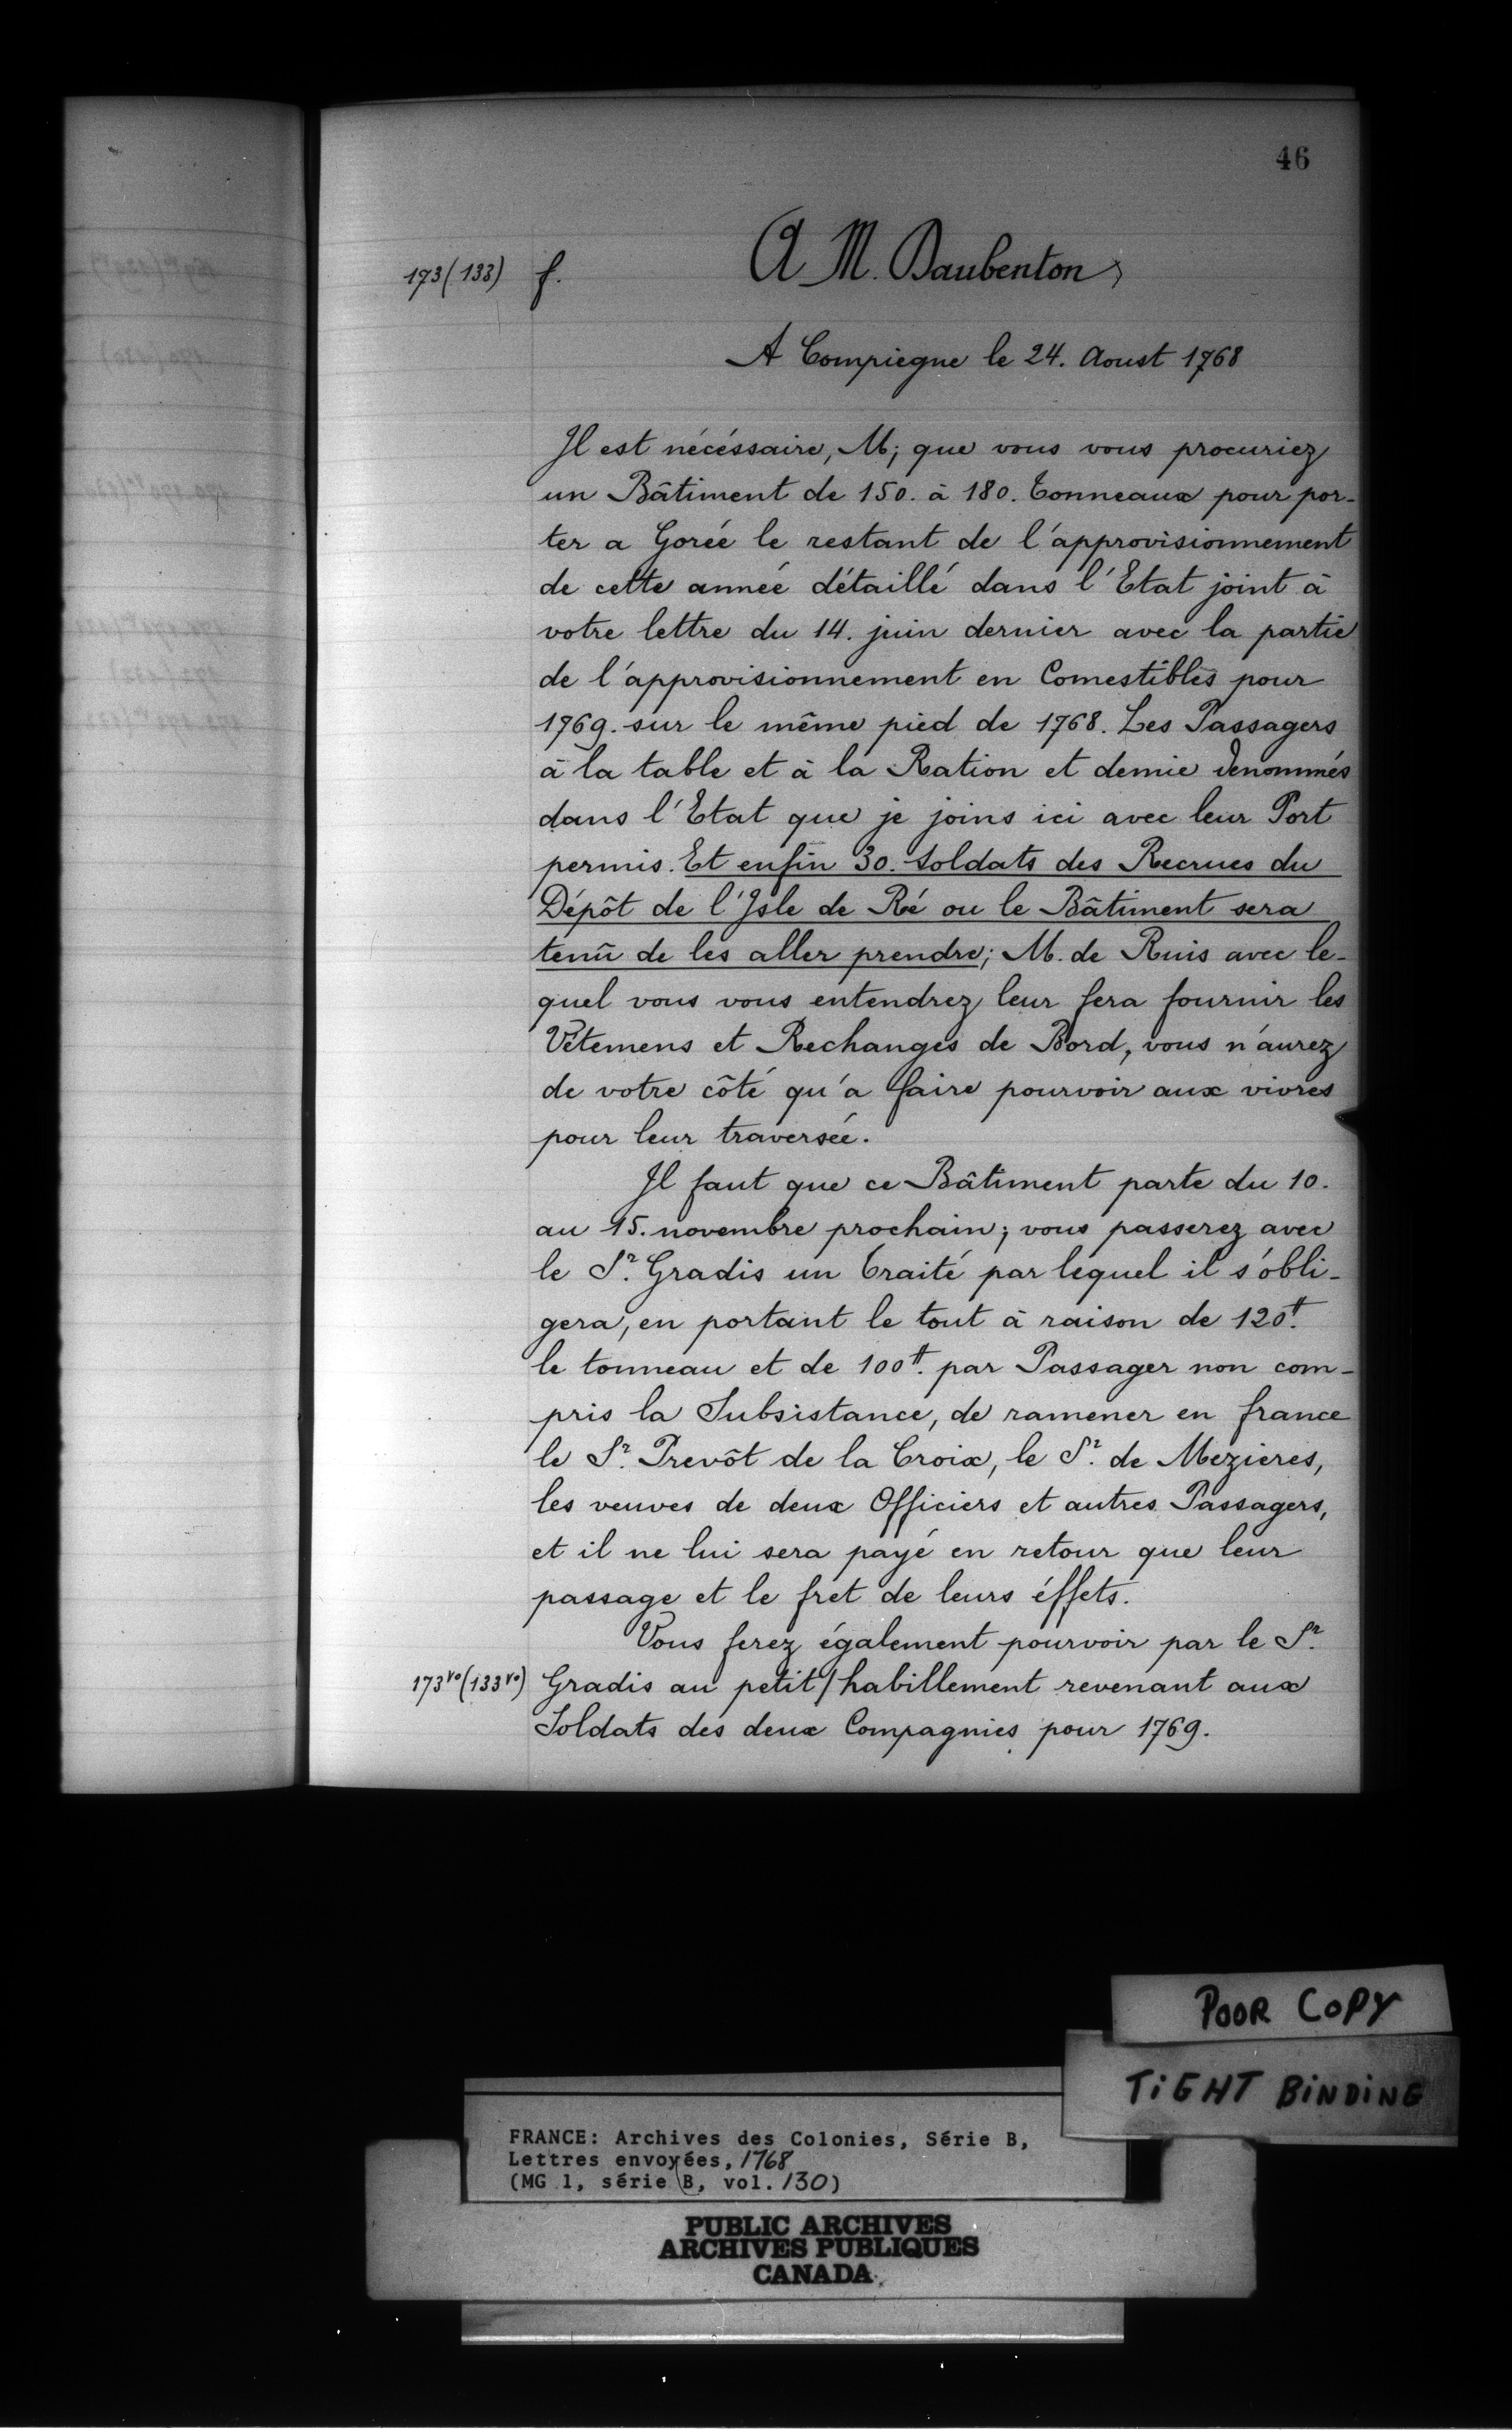 46
173 (133) f. A M. Daubenton
A Compiegne le 24. Aoust 1768
Il est nécéssaire, M; que vous vous procuriez
un Bâtiment de 150. à 180. Tonneaux pour por-
ter a Gorée le restant de l'approvisionnement
de cette année détaillé dans l'Etat joint à
votre lettre du 14. juin dernier avec la partie
de l'approvisionnement en Comestibles pour
1769. sur le même pied de 1768. Les Passagers
à la table et à la Ration et demie denommés
dans l'Etat que je joins ici avec leur Port
permis. Et enfin 30. Soldats des Recrues du
Dépôt de l'Isle de Ré ou le Bâtiment sera
tenû de les aller prendre; M. de Ruis avec le-
quel vous vous entendrez leur fera fournir les
Vêtemens et Rechanges de Bord, vous n'aurez
de votre côté qu'a faire pourvoir aux vivres
pour leur traversée.
Il faut que ce Bâtiment parte du 10.
au 15. novembre prochain; vous passerez avec
le Sr. Gradis un Traité par lequel il s'obli-
gera, en portant le tout à raison de 120tt.
le tonneau et de 100tt. par Passager non com-
pris la Subsistance, de ramener en france
le Sr. Prevôt de la Croix, le Sr. de Mezieres,
les veuves de deux Officiers et autres Passagers,
et il ne lui sera payé en retour que leur
passage et le fret de leurs éffets.
Vous ferez également pourvoir par le Sr.
173vo (133vo) Gradis au petit/habillement revenant aux
Soldats des deux Compagnies pour 1769.
POOR COPY
TIGHT BINDING
FRANCE: Archives des Colonies, Série B,
Lettres envoyées, 1768
(MG 1, série B, vol. 130)
PUBLIC ARCHIVES
ARCHIVES PUBLIQUES
CANADA